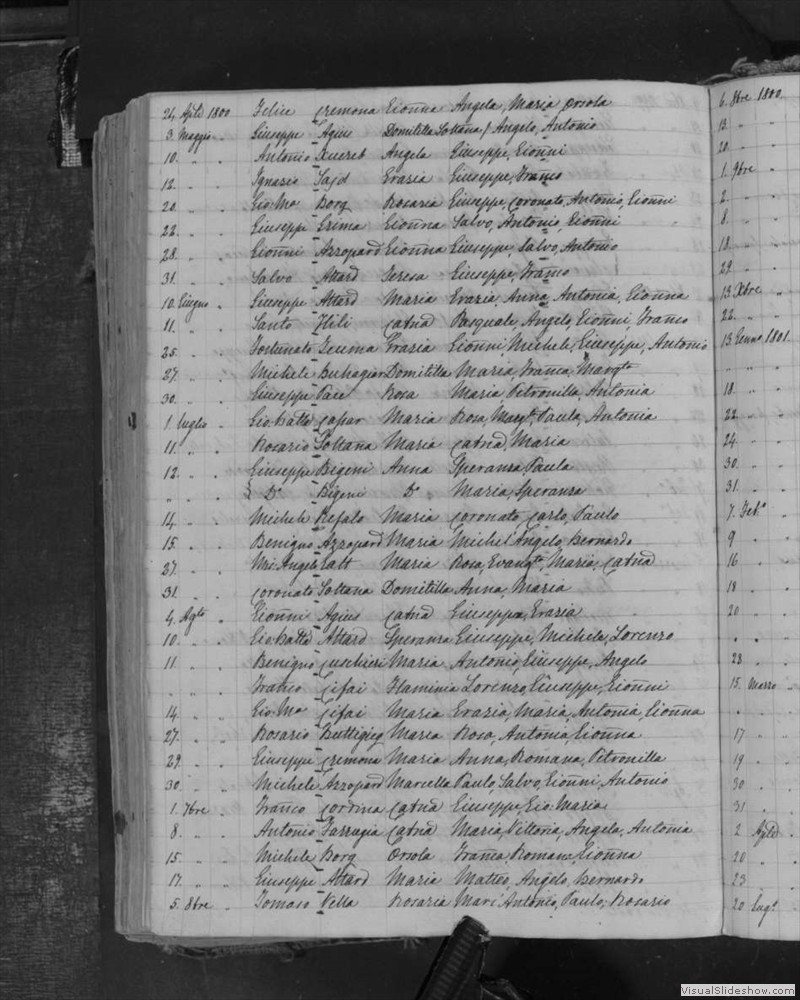 24 Aple 1800 Felice Cremona Gionna Angela, Maria Orsola
3. Maggio " Giuseppe Agius Domitilla Soltana / Angelo, Antonio
10. " " Antonio Xuereb Angela Giuseppe, Gionni
12. " " Ignazio Sajd Grazia Giuseppe, Franco
20. " " Gio: Ma Borg Rosaria Giuseppe, Coronato, Antonio, Gionni
22. " " Giuseppe Grima Gionna Salvo, Antonio, Gionni
28. " " Gionni Azzopard Gionna Giuseppe, Salvo, Antonio
31. " " Salvo Attard Teresa Giuseppe, Franco
10. Giugno " Giuseppe Attard Maria Grazia, Anna, Antonia, Gionna
11. " " Santo Hili Catna Pasquale, Angelo, Gionni, Franco
25. " " Fortunato Grazia Gionni, Michele, Giuseppe, Antonio
27. " " Michele Buhagiar Domitilla Maria, Franca, Margta
30. " " Giuseppe Pace Rosa Maria, Petronilla, Antonia
1. Luglio " Gio:Batta Caspar Maria Rosa, Margta, Paula, Antonia
11. " " Rosario Soltana Maria Catna, Maria
12. " " Giuseppe Bigeni Anna Speranza, Paula
" " " { Do Bigeni Do Maria, Speranza
14. " " Michele Refalo Maria Coronato, Carlo, Paulo
15. " " Benigno Azzopard Maria Michel'Angelo, Bernardo
27. " " Mic: Angelo Galt Maria Rosa, Evangta, Maria, Catna
31. " " Coronato Soltana Domitilla Anna, Maria
4. Agto " Gionni Agius Catna Giuseppa, Grazia
10. " " Gio:Batta Attard Speranza Giuseppe, Michele, Lorenzo
11. " " Benigno Cuschieri Maria Antonio, Giuseppe, Angelo
" " " Franco Cifai Flaminia Lorenzo, Giuseppe, Gionni
14. " " Gio: Ma Cifai Maria Grazia, Maria, Antonia, Gionna
27. " " Rosario Buttigieg Maria Rosa, Antonia, Gionna
29. " " Giuseppe Cremona Maria Anna, Romana, Petronilla
30. " " Michele Azzopard Marcella Paulo Salvo, Gionni, Antonio
1. 7bre " Franco Cordina Catna Giuseppe, Gio: Maria
8. " " Antonio Farrugia Catna Maria, Vittoria, Angela, Antonia
15. " " Michele Borg Orsola Franca Romana, Gionna
17. " " Giuseppe Attard Maria Matteo, Angelo, Bernardo
5. 8bre " Tomaso Vella Rosaria Mari Antonio, Paulo, Rosario
6. 8bre 1800
13. " "
20. " "
1. 9bre "
2. " "
8. " "
18. " "
29. " "
13 Xbre "
22. " "
13 Genno 1801.
" " "
18. " "
22. " "
24. " "
30. " "
31. " "
7. Feb.o "
9 " "
16 " "
18 " "
20 " "
" " "
28 " "
15. Marzo "
" " "
17 " "
19 " "
30 " "
31 " "
2 Aple "
20 " "
23 " "
20 Lugo "
VisualSlideshow.com